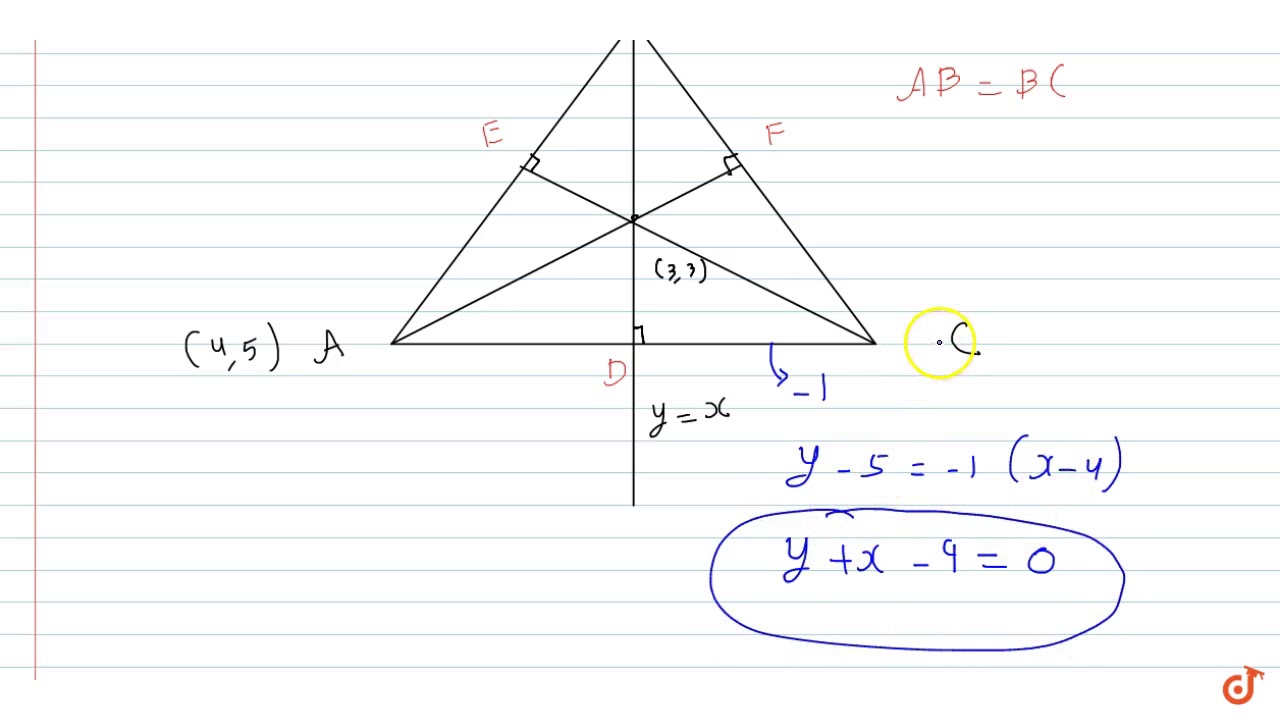 AB = B(
E
F
(3,3)
(4,5) A
C
D
-1
y = x
y - 5 = -1 (x - 4)
y + x - 9 = 0